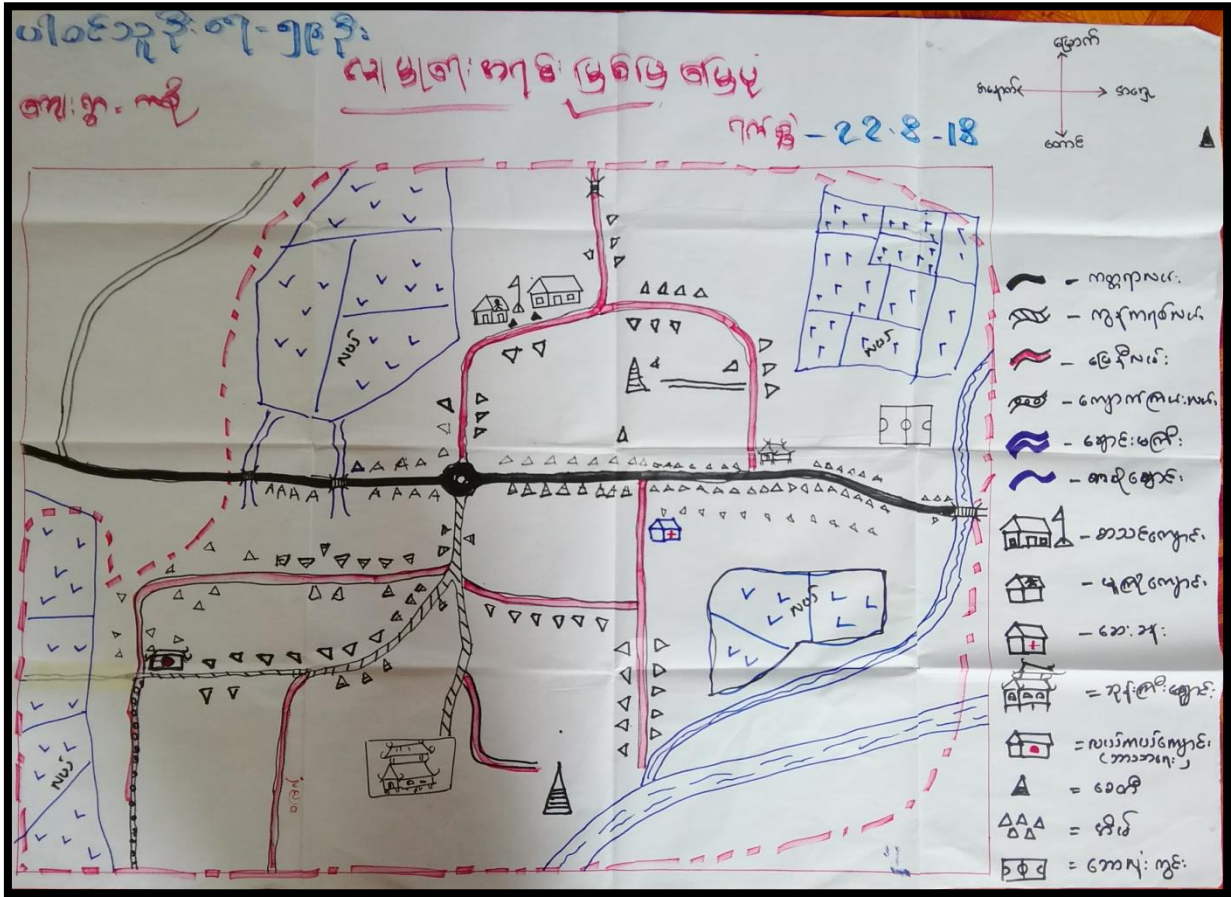 ကျေးရွာ - ကစို
လူမှုရေး အရင်းအမြစ်ပြ မြေပုံ
ရက်စွဲ - 22-8-18
မြောက်
အနောက်
အရှေ့
တောင်
လယ်
လယ်
လယ်
လယ်
- ကတ္တရာလမ်း
- ကွန်ကရစ်လမ်း
- မြေနီလမ်း
- ကျောက်ကြမ်းလမ်း
- ချောင်းမကြီး
- စာသင်ကျောင်း
- မူကြိုကျောင်း
- ဆေးခန်း
= ဘုန်းကြီးကျောင်း
(ဘာသာရေး)
= စေတီ
= အိမ်
= ဘောလုံးကွင်း